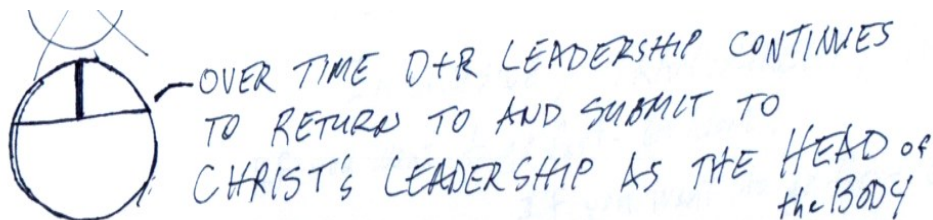 OVER TIME D+R LEADERSHIP CONTINUES
TO RETURN TO AND SUBMIT TO
CHRIST'S LEADERSHIP AS THE HEAD of
the BODY